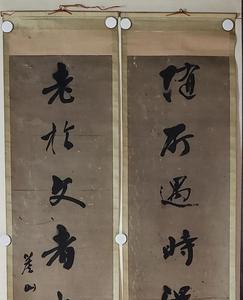 随所遇時
老於文者
山